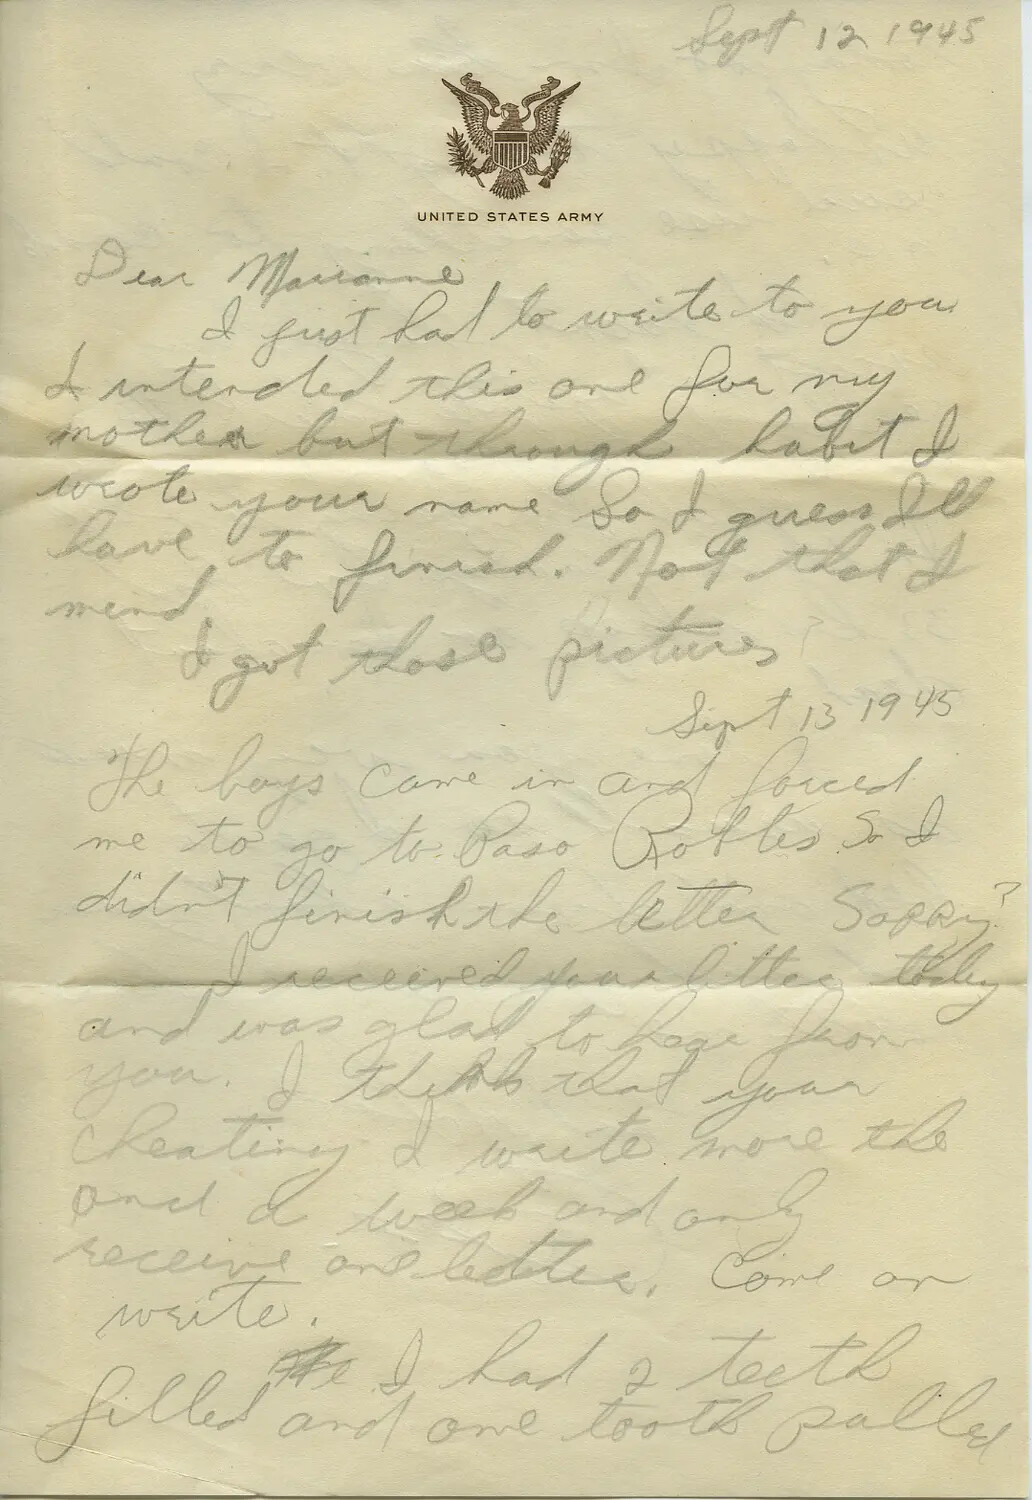 Sept 12 1945
UNITED STATES ARMY
Dear Marianne
I just had to write to you
I intended this one for my
mother but through habit I
wrote your name So I guess Ill
have to finish. Not that I
mind.
I got those pictures
Sept 13 1945
The boys came in and forced
me to go to Paso Robles So I
didn't finish the letter Sorry?
I received your letter today
and was glad to hear from
you. I think that your
cheating I write more the
once a week and only
receive one letter. Come on
write.
I had 2 teeth
filled and one tooth pulled